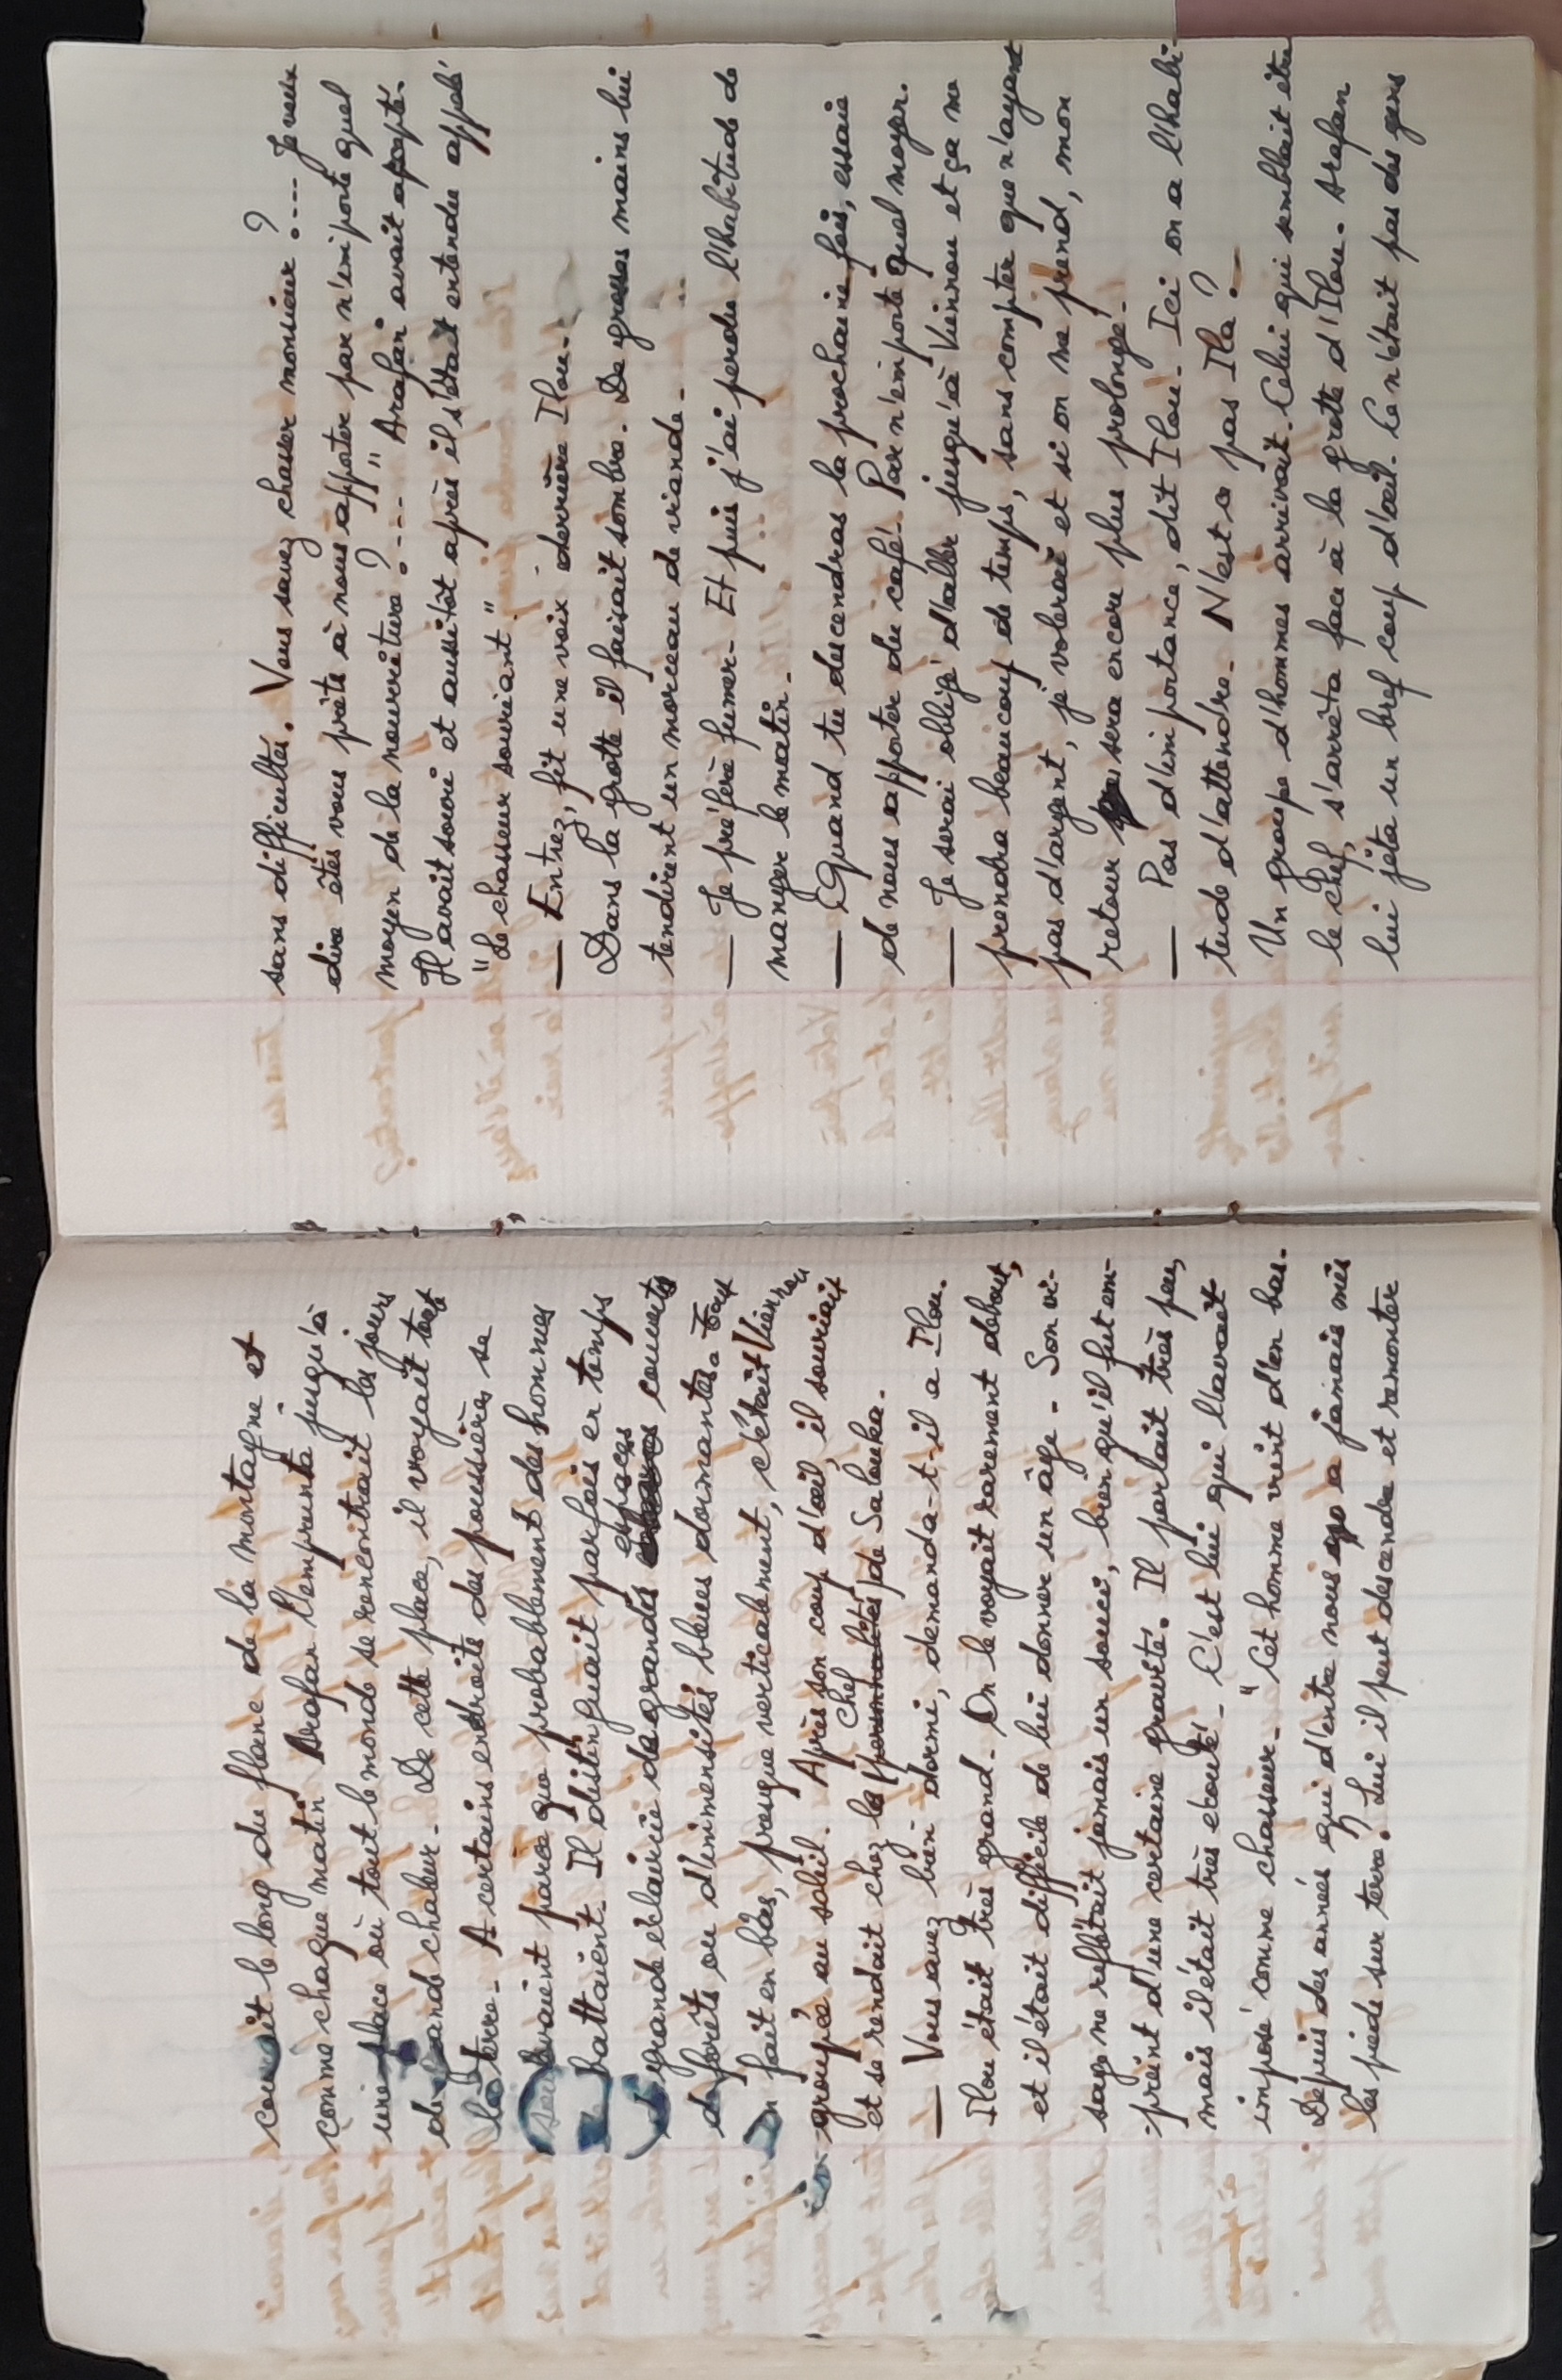 courait le long du flanc de la montagne et
comme chaque matin Arafan l'emprunta jusqu'à
une place où tout le monde se rencontrait les jours
de grande chaleur. De cette place, il voyait toute
la terre. A certains endroits des poussières se
soulevaient parce que probablement des hommes
se battaient. Il distinguait parfois en temps
de grande éclaircie de grandes espaces couverts
de forêts ou d'immensités bleues dormantes. Tout
en fait en bas, presque verticalement, c'était Viennou
groupée au soleil. Après son coup d'œil, il souriait
et se rendait chez le chef de Salouka.
— Vous avez bien dormi, demanda-t-il a Ilou.
Ilou était très grand. On le voyait rarement debout,
et il était difficile de lui donner un âge. Son vi-
sage ne reflétait jamais un souci, bien qu'il fut em-
preint d'une certaine gravité. Il parlait très peu,
mais il était très ecouté. C'est lui qui l'avait
imposé comme chasseur. "Cet homme vient d'en bas.
Depuis des années qui d'entre nous a jamais mis
les pieds sur terre. Lui il peut descendre et remonter
sans difficultés. Vous savez chasser monsieur ?.... Je veux
dire êtes vous prêts à nous apporter par n'importe quel
moyen de la nourriture ?...." Arafan avait accepté.
Il avait souri et aussitôt après il s'était entendu appelé
"Le chasseur souriant."
— Entrez, fit une voix derrière Ilou.
Dans la grotte il faisait sombre. De grosses mains lui
tendirent un morceau de viande.
— Je préfère fumer. Et puis j'ai perdu l'habitude de
manger le matin.
— Quand tu descendras la prochaine fois, essaie
de nous apporter du café. Par n'importe quel moyen.
— Je serai obligé d'aller jusqu'à Viennou et ça me
prendra beaucoup de temps, sans compter que n'ayant
pas d'argent, je volerai et si on me prend, mon
retour sera encore plus prolongé.
— Pas d'importance, dit Ilou. Ici on a l'habi-
tude d'attendre. N'est ce pas Ila ?
Un groupe d'hommes arrivait. Celui qui semblait être
le chef, s'arrêta face à la grotte d'Ilou. Arafan
lui jeta un bref coup d'œil. Ce n'était pas des gens